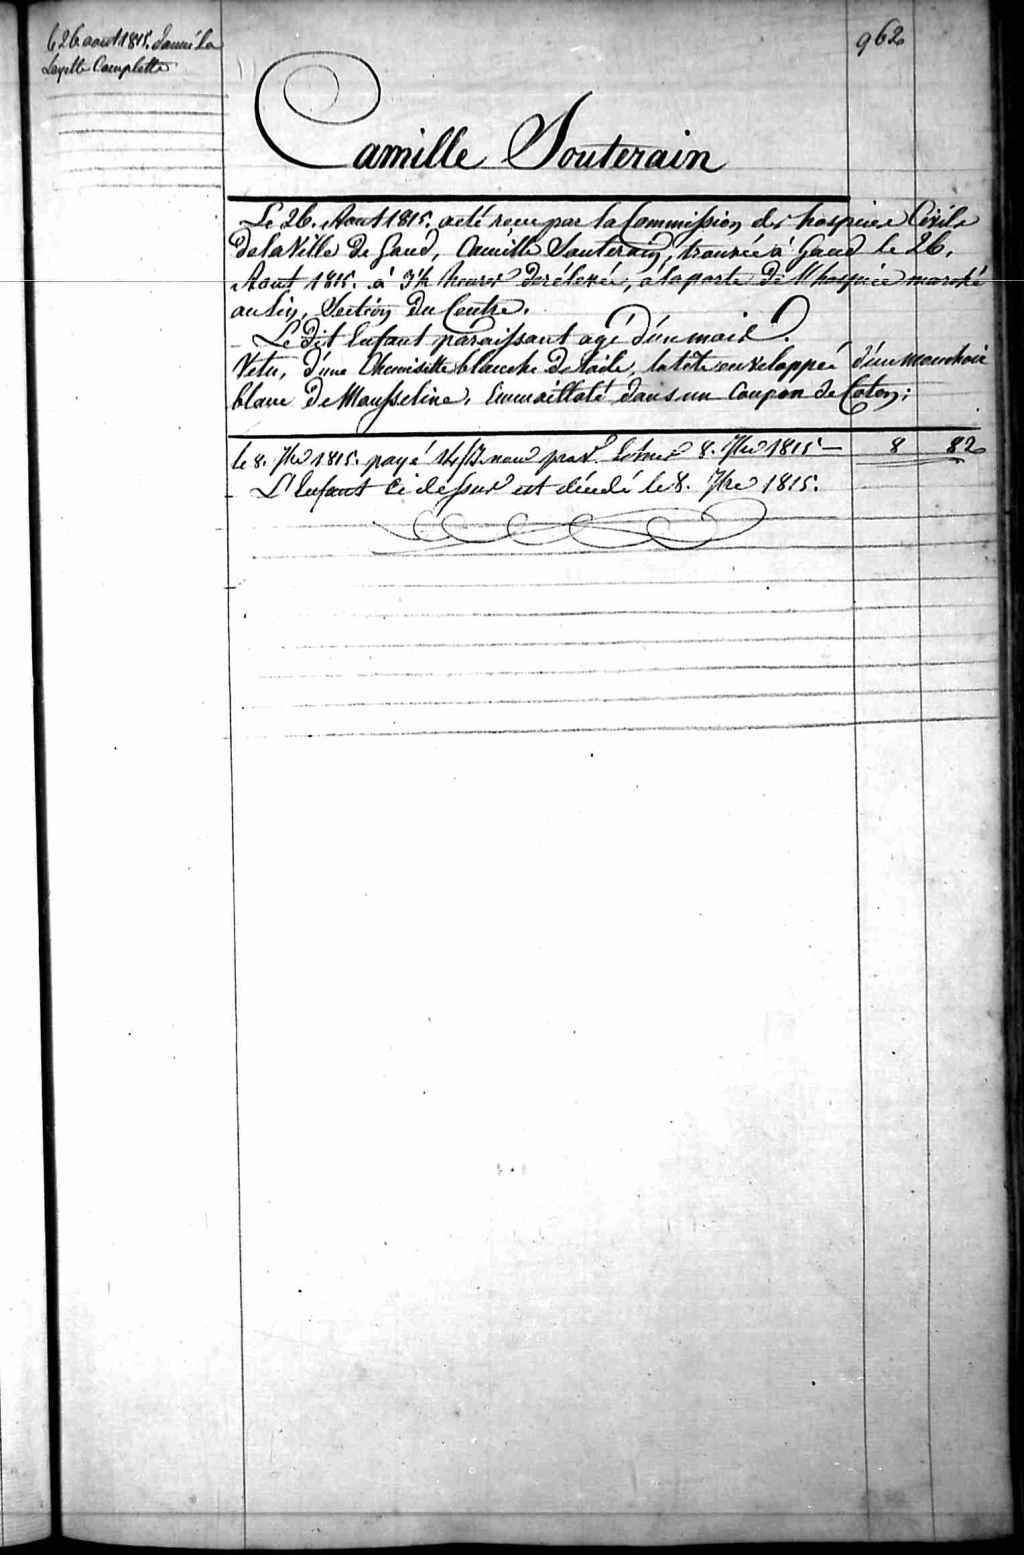 le 26 aout 1815. donné La
Layette Complette
962
Camille Souterain
Le 26. Aout 1815. a été reçu par la Commission des hospices Civils
de la Ville de Gand, Camille Souterain, trouvée à Gand le 26.
Aout 1815. à heures de rélevée, à la porte de l'hospice marché
au Lin, Section du Centre.
Le dit Enfant paraissant agé d'un mois.
Vetu, d'une Chemisette blanche de toile, la tête enveloppée d'un mouchoir
blanc de Mousseline, Emmailloté dans un Coupon de Coton;
le 8. 7bre 1815. payé 8. 7bre 1815 — 8 82
L'Enfant ci dessus est décédé le 8. 7bre 1815.